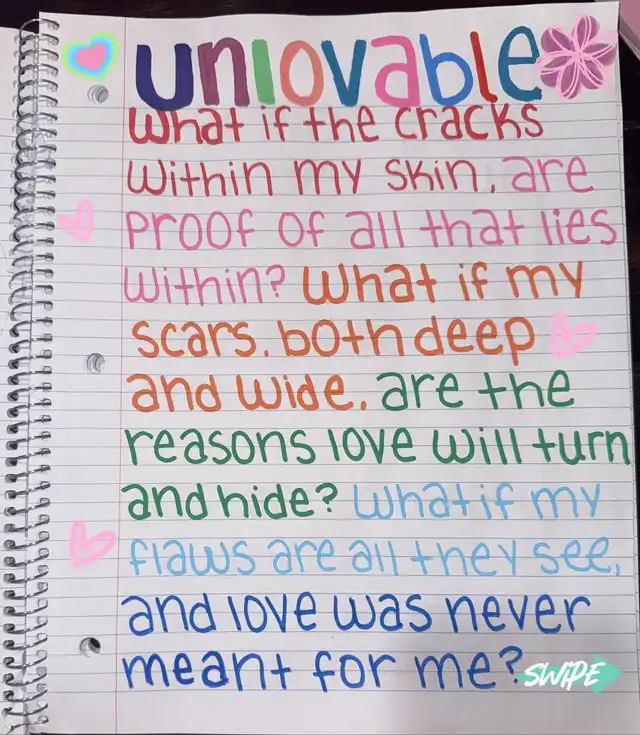 unlovable
What if the cracks
within my skin, are
proof of all that lies
within? What if my
scars, both deep
and wide, are the
reasons love will turn
and hide? What if my
flaws are all they see,
and love was never
meant for me?
SWIPE